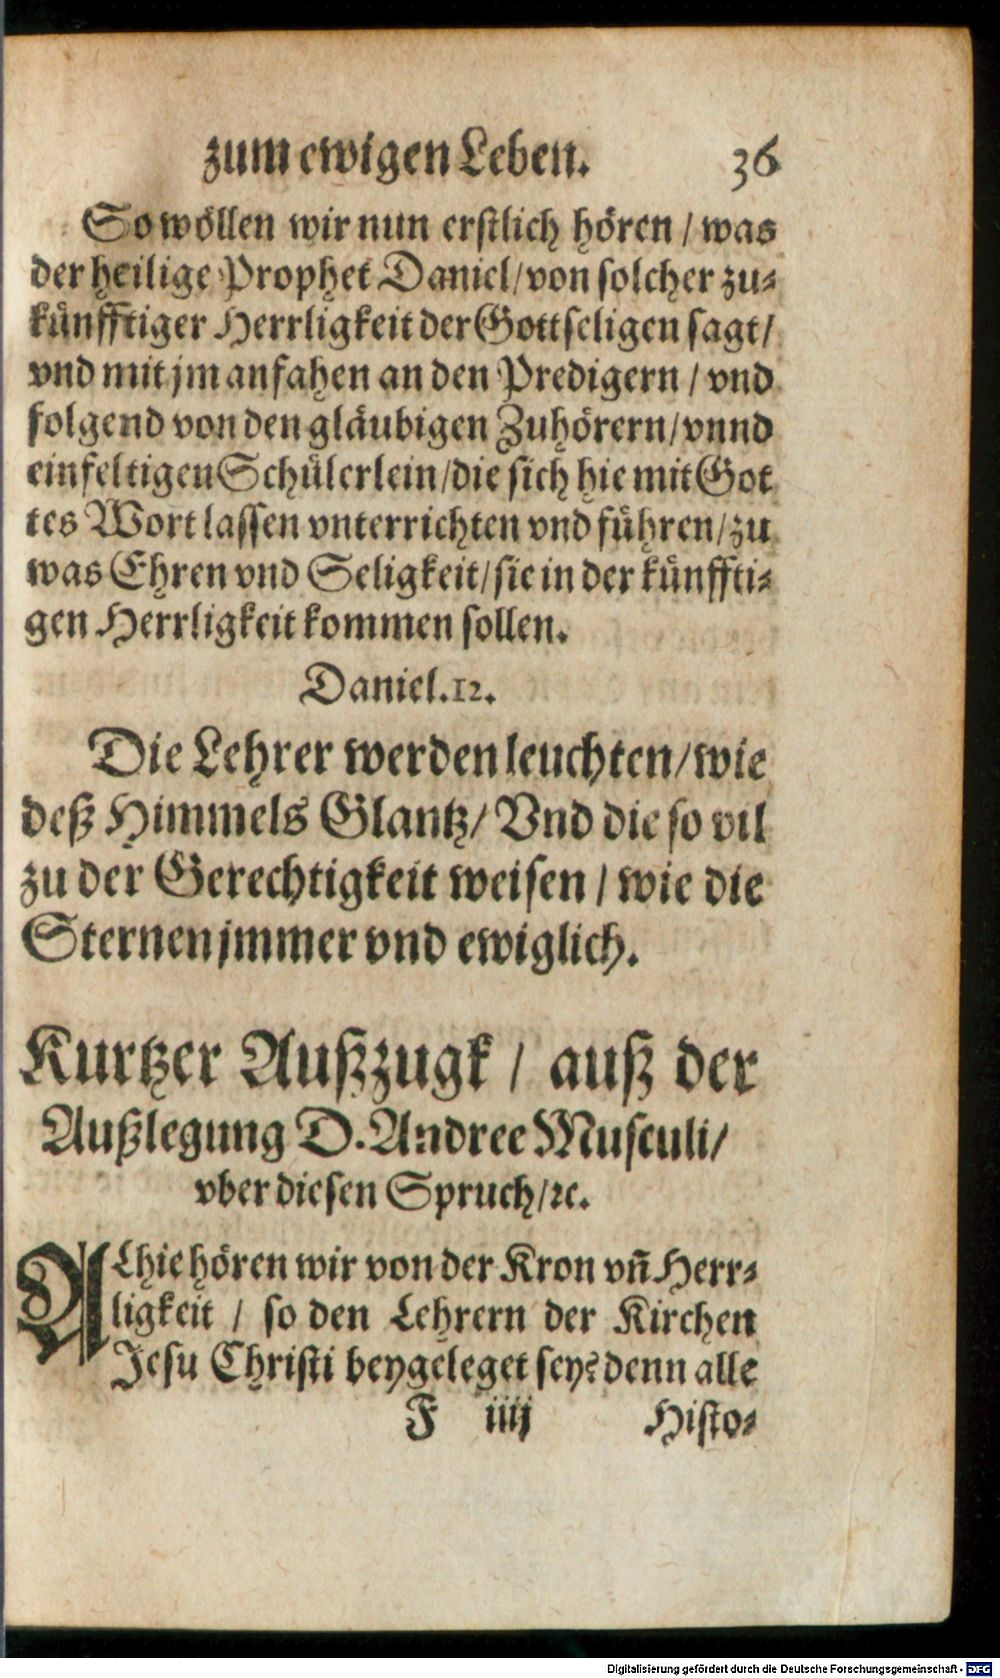 zum ewigen Leben. 36
So wöllen wir nun erstlich hören / was
der heilige Prophet Daniel / von solcher zu⸗
künfftiger Herrligkeit der Gottseligen sagt /
vnd mit jm anfahen an den Predigern / vnd
folgend von den gläubigen Zuhörern / vnnd
einfeltigen Schülerlein / die sich hie mit Got
tes Wort lassen vnterrichten vnd führen / zu
was Ehren vnd Seligkeit / sie in der künffti⸗
gen Herrligkeit kommen sollen.
Daniel. 12.
Die Lehrer werden leuchten / wie
deß Himmels Glantz / Vnd die so vil
zu der Gerechtigkeit weisen / wie die
Sternen jmmer vnd ewiglich.
Kurtzer Außzugk / auß der
Außlegung D. Andree Musculi /
vber diesen Spruch / ꝛc.
ALhie hören wir von der Kron vñ Herr⸗
ligkeit / so den Lehrern der Kirchen
Jesu Christi beygeleget sey? denn alle
F iiij Histo⸗
Digitalisierung gefördert durch die Deutsche Forschungsgemeinschaft - DFG